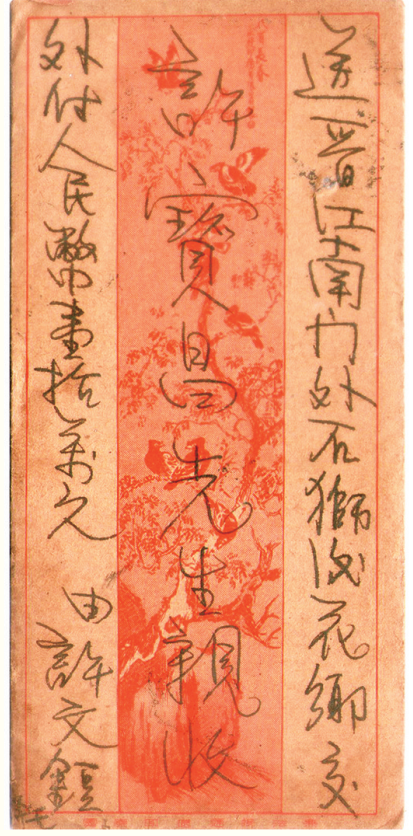 送晋江南门外石獅後花鄉交
許寶昌先生親收
外付人民幣壹拾萬元
由許文